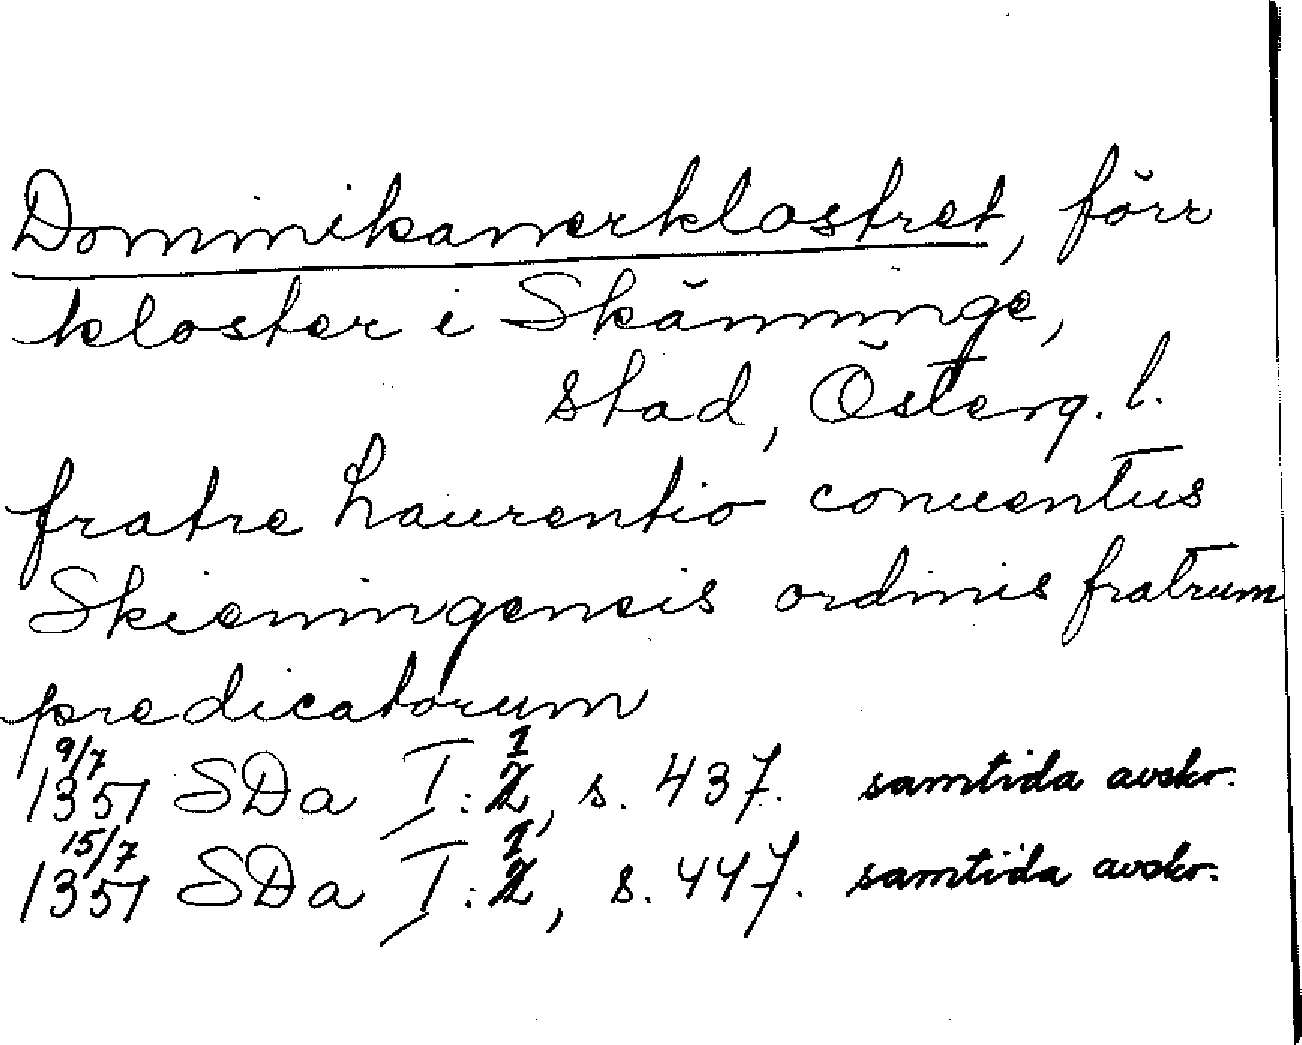 Dominikanerklostret, förr
kloster i Skänninge,
stad, Österg. l.
fratre Laurentio conuentus
Skieningensis ordinis fratrum
predicatorum
9/7 1351 SDa I: I, s. 437. samtida avskr.
15/7 1351 SDa I: I, s. 447. samtida avskr.